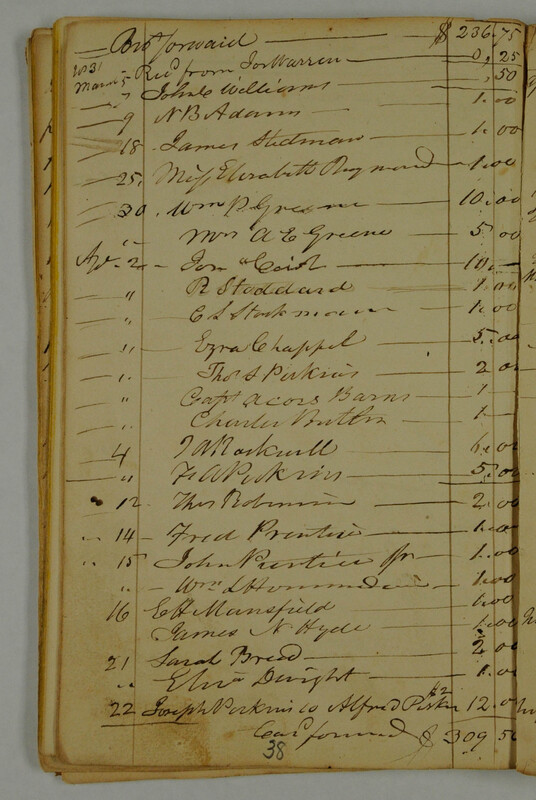 Bro't forward $ 236,75
March 5 Rec'd from Jos Warren 0,25
7 John C Williams ,50
9 N B Adams 1.00
18 James Stedman 1.00
25. Miss Elizabeth Raymond 1.00
30. Wm P. Greene 10.00
" Mrs A E Greene 5.00
Ap. 2 Jon " 10.—
" R Stoddard 1.00
" C S Stockman 1.00
" Ezra Chappel 5.00
" Thos S Perkins 2 00
" Capt Acors Barns 1 —
" Charles Butler 1 —
4 J A Rockwell 6.00
" F A Perkins 5.00
" 12 Thos Robinson 2.00
" 14 Fred Prentice 1.00
" 15 John Prentice Jr 1.00
" Wm L'Hommedieu 1.00
16 E H Mansfield 1.00
James N Hyde 1.00
21 Sarah Breed 2.00
" Dwight 1.00
22 Joseph Perkins Alfred Perkins $2 12.00
Car'd forward $ 309 50
38